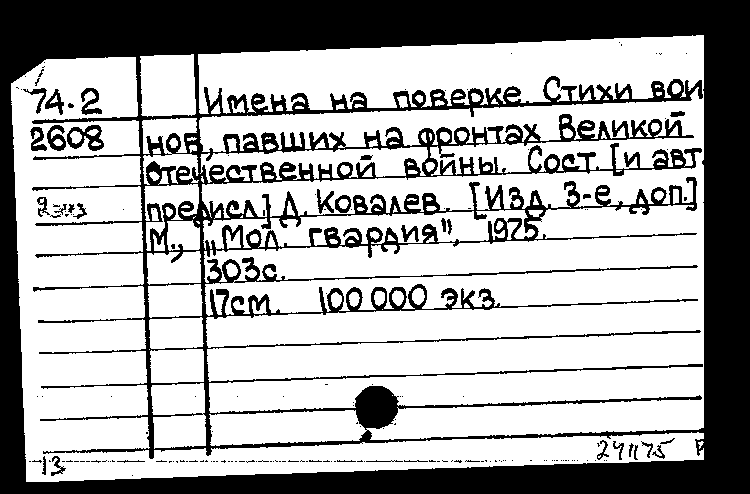 74.2 Имена на поверке. Стихи вои
2608 нов, павших на фронтах Великой
Отечественной войны. Сост. [и авт.
2 экз предисл.] Д. Ковалев. [Изд. 3-е, доп.]
М., „Мол. гвардия", 1975.
303с.
17см. 100 000 экз.
13